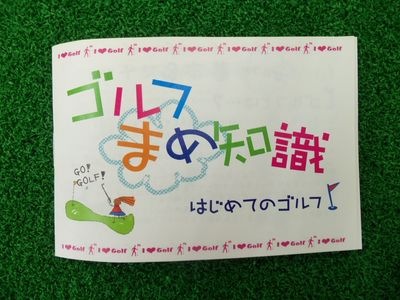 I ❤ Golf I ❤ Golf I ❤ Golf I ❤ Golf I ❤ Golf I ❤ Golf
ゴルフ
まめ知識
GO!
GOLF!
はじめてのゴルフ
I ❤ Golf I ❤ Golf I ❤ Golf I ❤ Golf I ❤ Golf I ❤ Golf